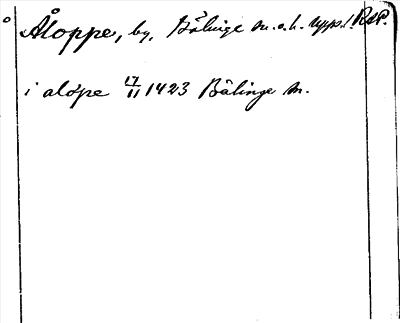 Åloppe, by, Bälinge sn. o. h. Upps.l. RAP.
i alöpe 17/11 1423 Bälinge sn.